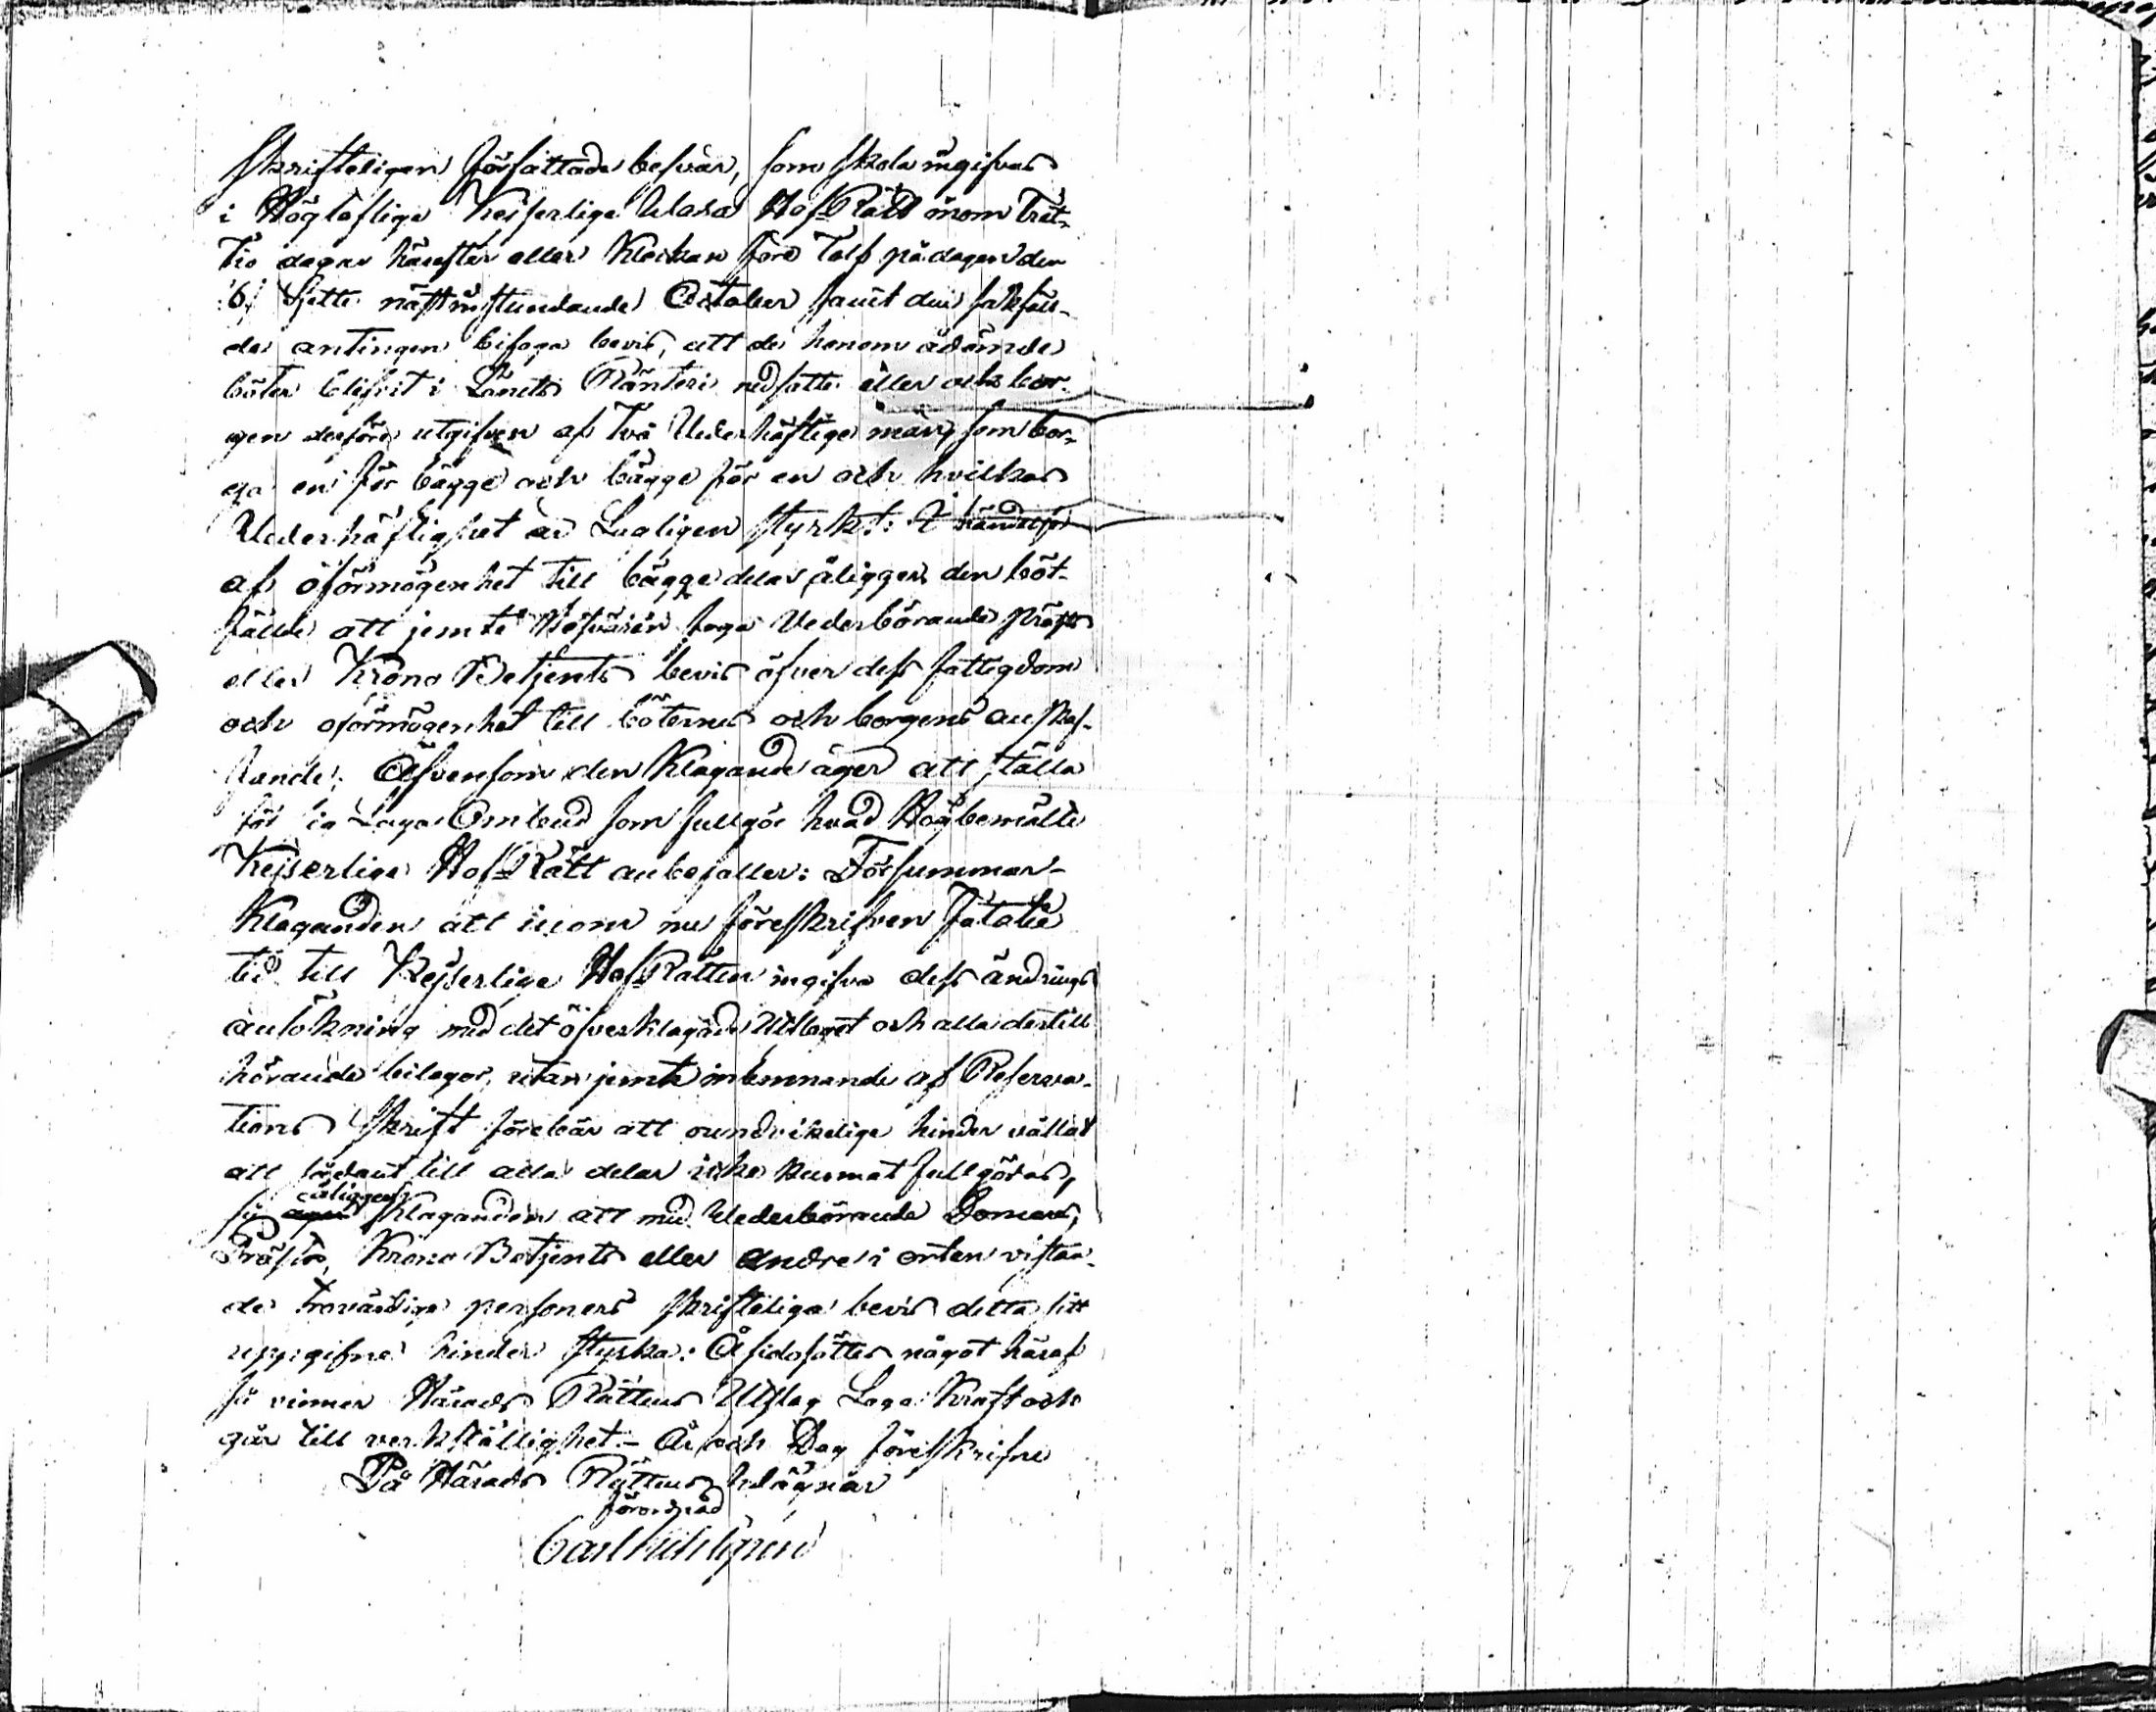 skrifteligen författade besvär, som skola ingifvas
i Höglöflige Kejserlige Wasa HofRätt inom Tret¬
tio dagar härefter eller Klockan före Tolf på dagen den
6 Sjette nästinstundande October samt den sakfäll¬
de antingen bifoga bevis, att de honom ådömde
böter blifvit i Länets Ränteri nedsatte eller ock bor¬
gen derföre utgifven af Två Wederhäftige män, som bor¬
ga en för bägge och bägge för en och hvilkas
Wederhäftighet är Lagligen styrkt: I händelse
af oförmögenhet till bägge delar, åligger den böt¬
fällde att jemte Besvären foga Vederbörande Prests
eller Krono Betjents bevis öfver dess fattigdom
och oförmögenhet till böternes och borgens anskaf¬
fande; Äfvensom den Klagande äger att ställa
för sig Laga Ombud som fullgör hvad Högbemälte
Kejserlige HofRätt anbefaller: Försummar
Klaganden att inom nu föreskrifven fatalie
tid till Kejserlige HofRätten ingifva dess ändrings
ansökning med det öfverklagade Utslaget och alla dertill
hörande bilagor, utan jemte inlemnande af Reserva¬
tions skrift förebär att oundvikelige hinder vållat
att sådant till alla delar icke kunnat fullgöras,
åligger
så Klaganden att med Wederbörande Domares,
Prests, Krono Betjents eller andre i orten vistan¬
de trovärdige personers skriftelige bevis detta sitt
uppgifne hinder styrka: Åsidosättes något häraf
så vinner Härads Rättens Utslag Laga Kraft och
går till verkställighet. – År och Dag föreskrifne
På Härads Rättens Wägnar
förordnad
Carl